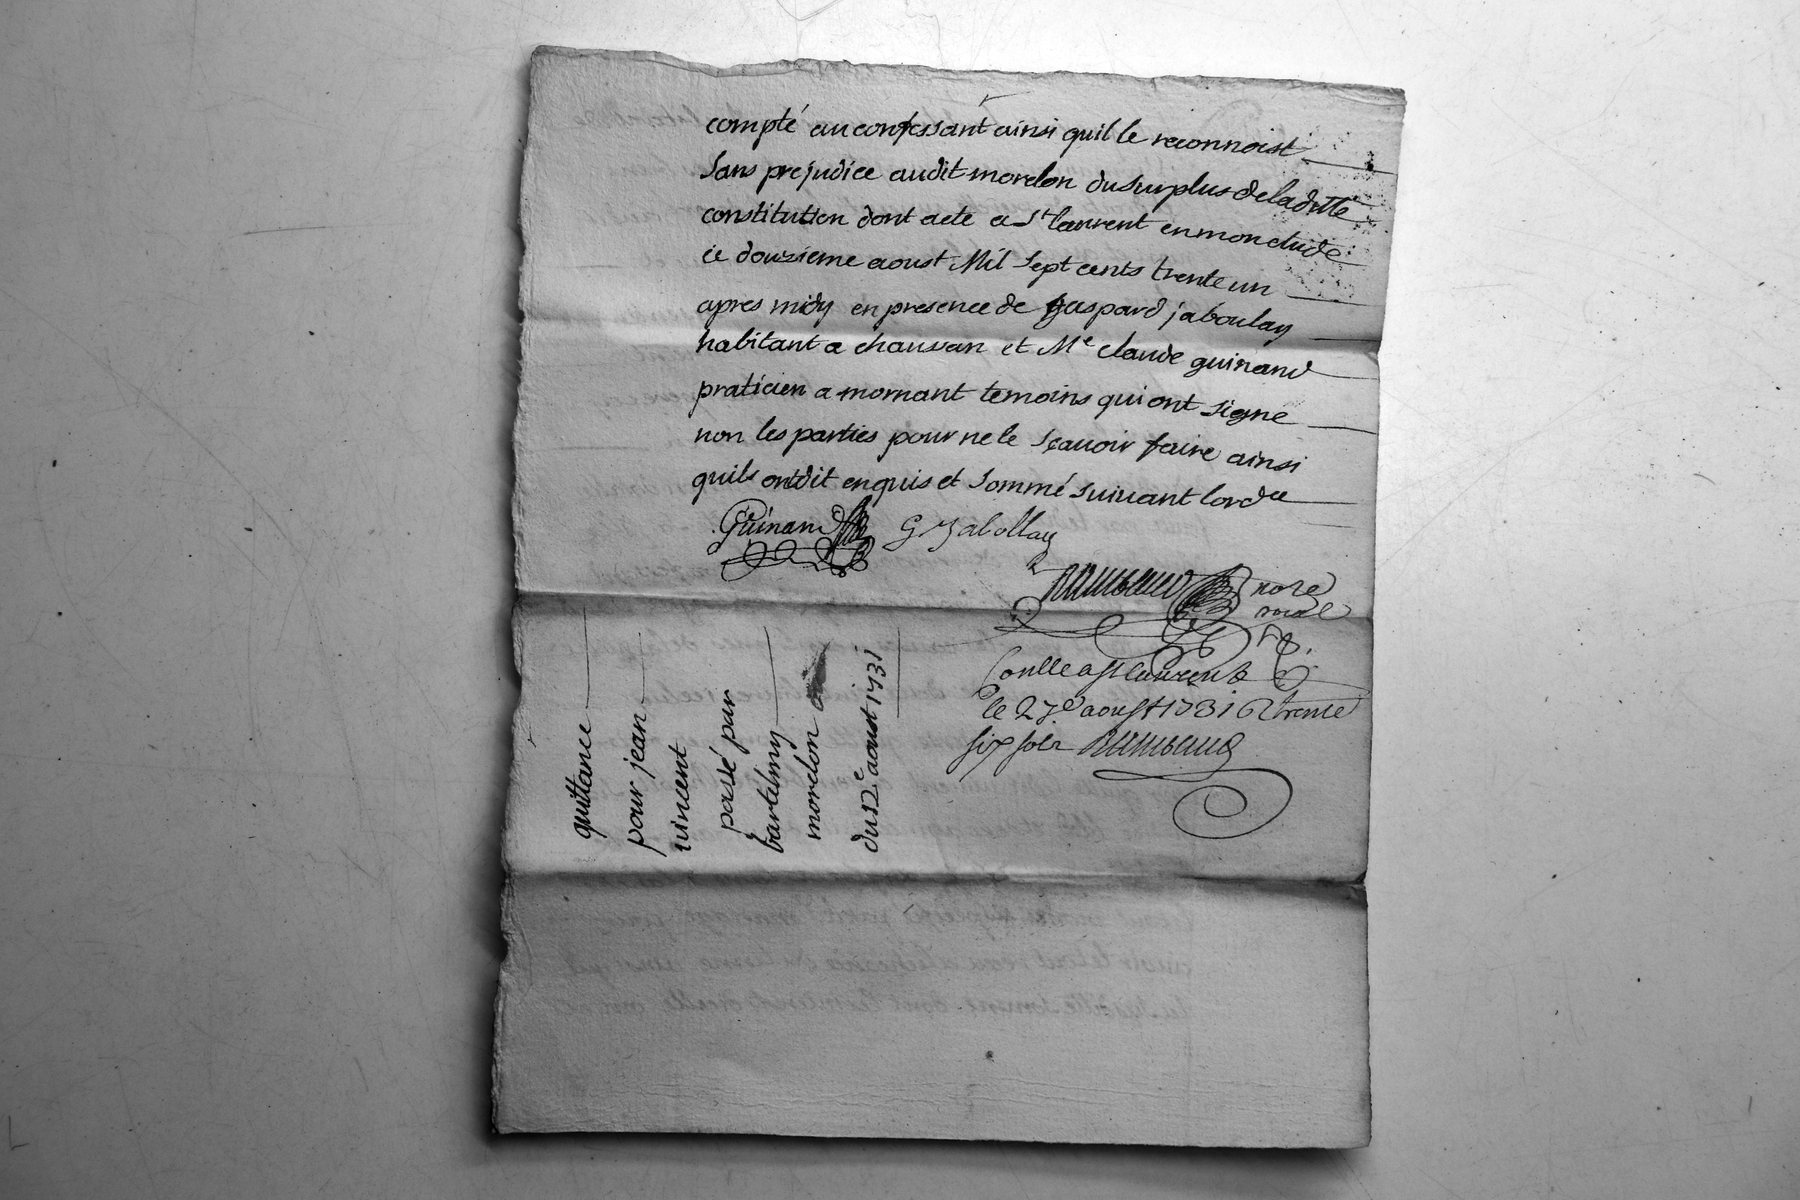 compté au confessant ainsi quil le reconnoist
sans prejudice audit morelon du surplus de laditte
constitution dont acte a St laurent en mon etude
ce douzieme aoust Mil sept cents trente un
apres midy en presence de gaspard jaboulay
habitant a chaussan et Me claude guinand
praticien a mornant temoins qui ont signe
non les parties pour ne le sçauoir faire ainsi
quils ont dit enquis et sommé suiuant lordce
Guinand G Jabollay
nore
roial
Conlle a st laurent
le 27e aoust 1731 R trente
six sols
quittance
pour jean
uincent
passé par
bartelmy
morelon
du 12e aoust 1731